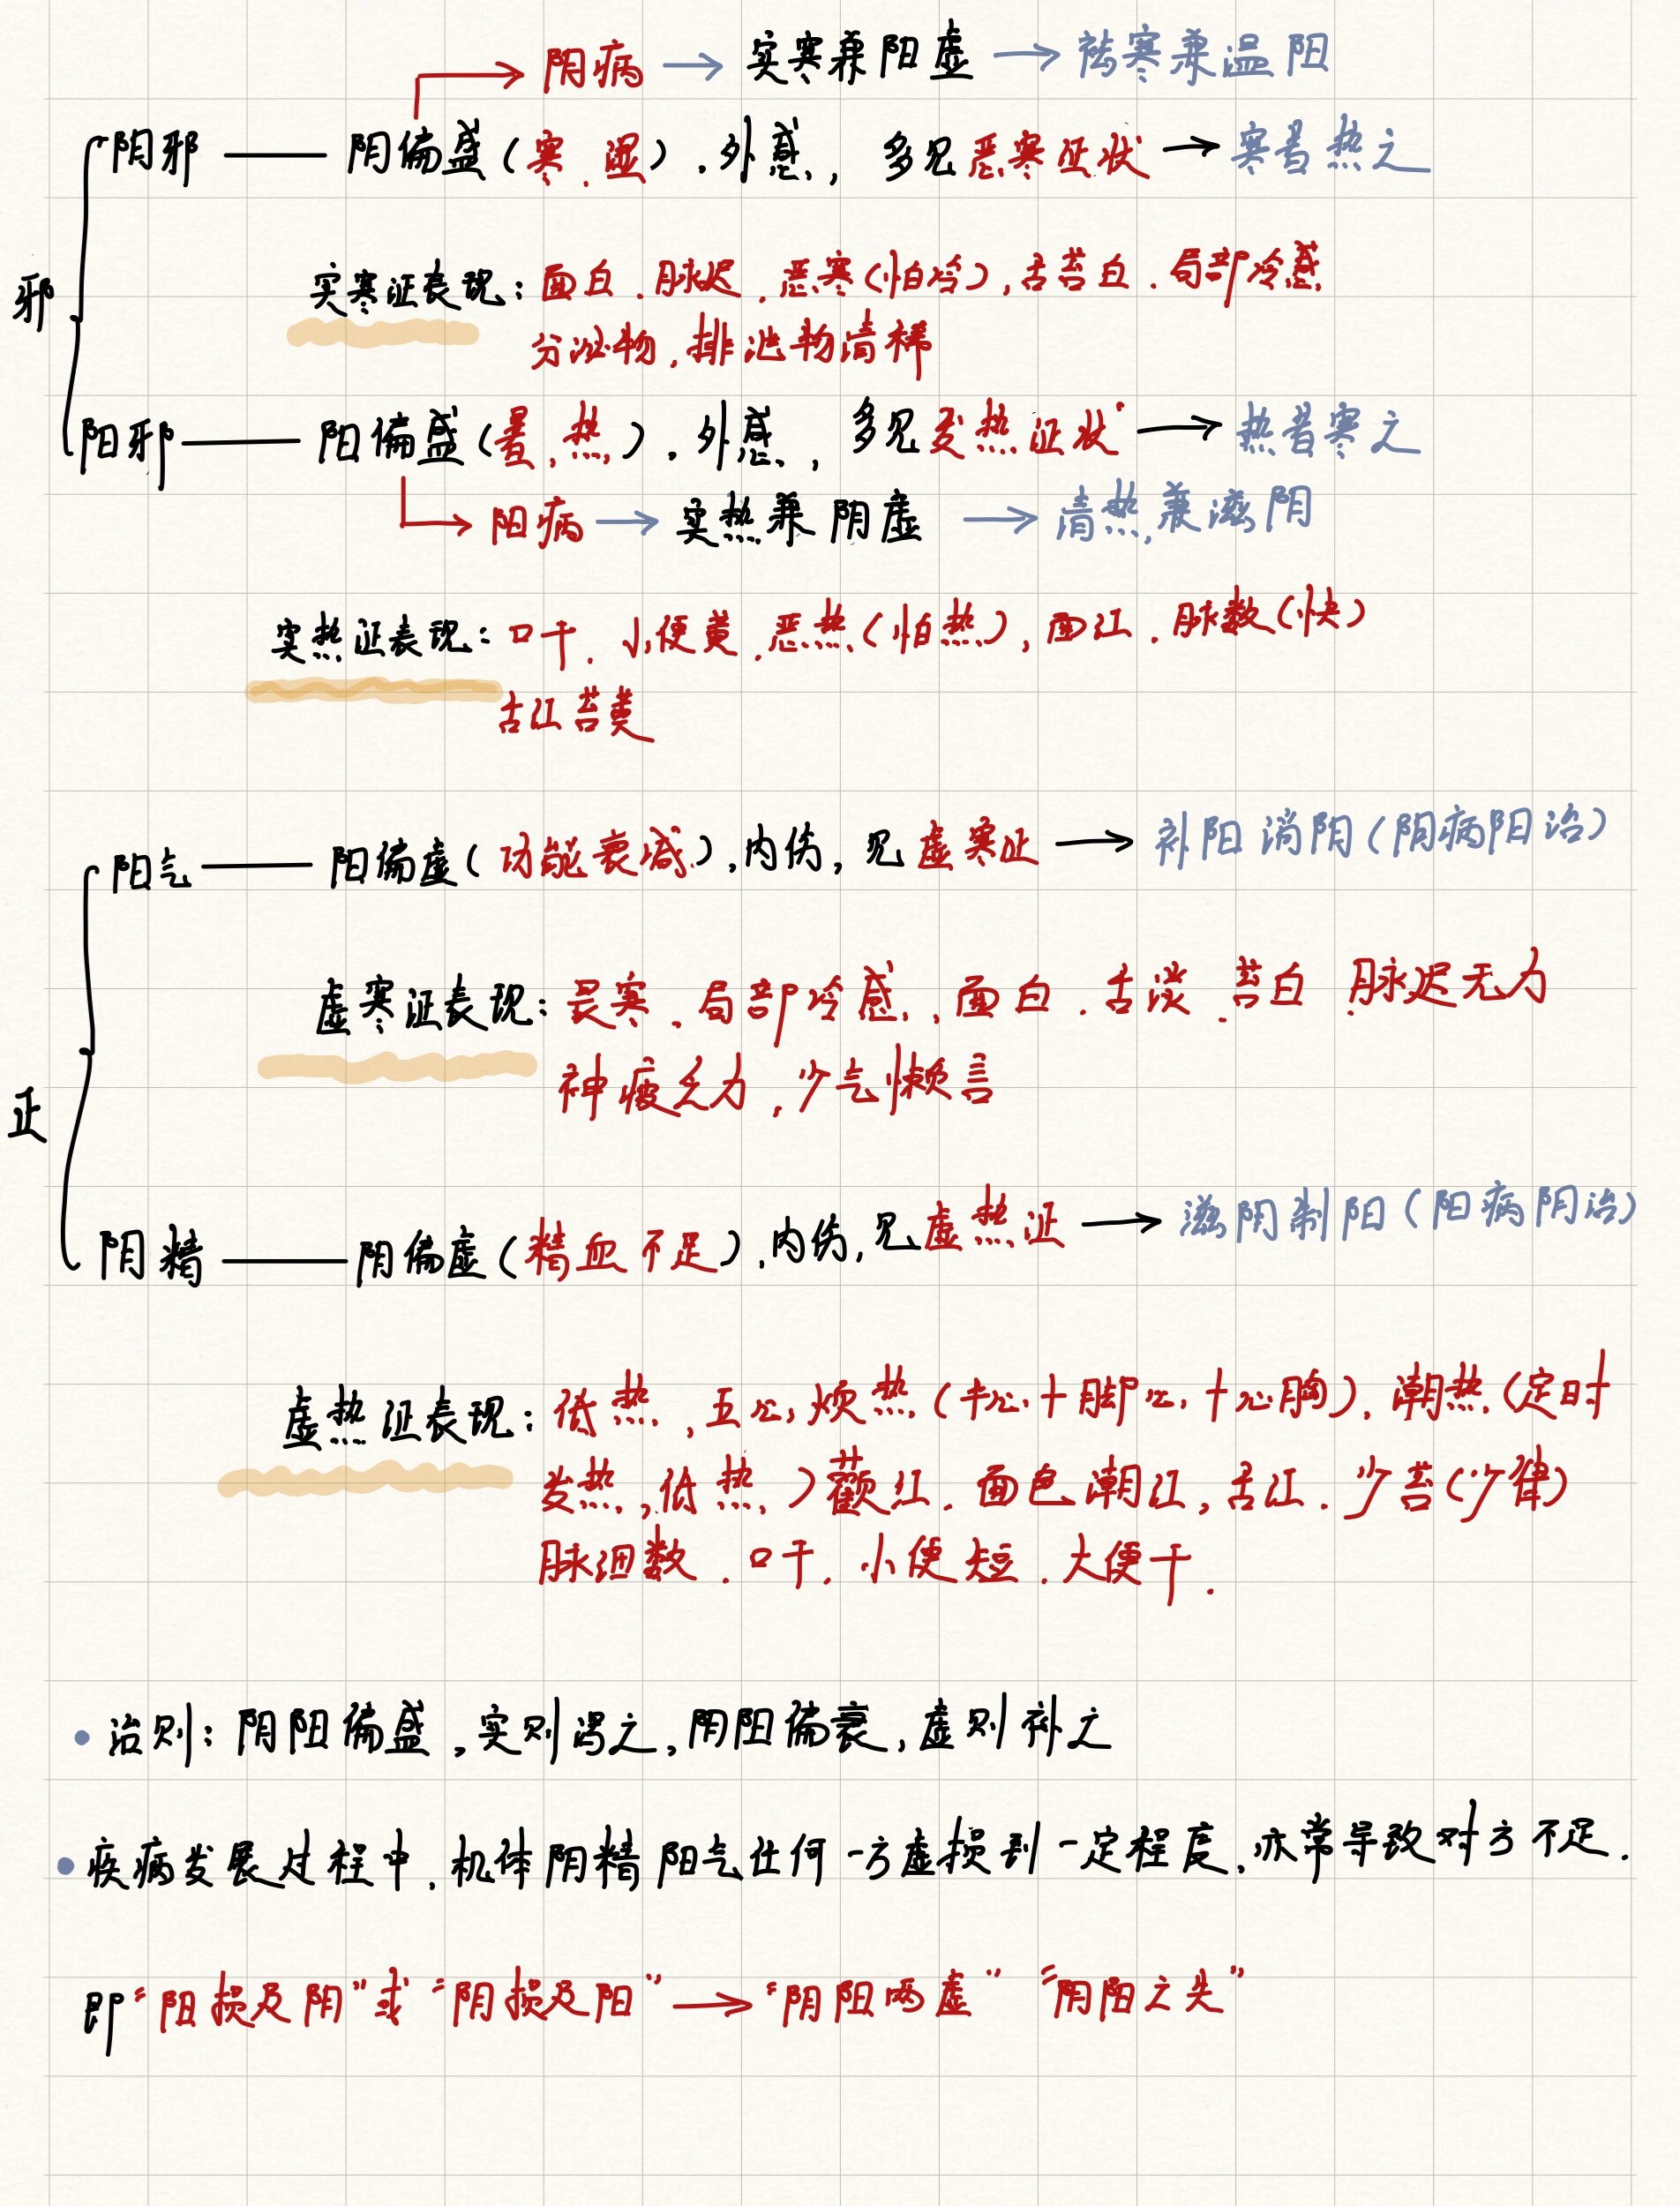 阴病 → 实寒兼阳虚 → 祛寒兼温阳
阴邪 — 阴偏盛(寒、湿)、外感, 多见恶寒症状 → 寒者热之
邪
实寒证表现: 面白、脉迟、恶寒(怕冷), 舌苔白、局部冷感
分泌物、排泄物清稀
阳邪 — 阳偏盛(暑、热)、外感, 多见发热症状 → 热者寒之
阳病 → 实热兼阴虚 → 清热兼滋阴
实热证表现: 口干、小便黄、恶热(怕热), 面红、脉数(快)
舌红苔黄
阳气 — 阳偏虚(功能衰减), 内伤, 见虚寒证 → 补阳消阴(阴病阳治)
虚寒证表现: 畏寒、局部冷感、面白、舌淡、苔白 脉迟无力
神疲乏力、少气懒言
正
阴精 — 阴偏虚(精血不足), 内伤, 见虚热证 → 滋阴制阳(阳病阴治)
虚热证表现: 低热、五心烦热(手心+脚心+心胸)、潮热(定时
发热, 低热)颧红、面色潮红, 舌红、少苔(少津)
脉细数、口干、小便短、大便干.
• 治则: 阴阳偏盛, 实则泻之, 阴阳偏衰, 虚则补之
• 疾病发展过程中, 机体阴精阳气任何一方虚损到一定程度, 亦常导致对方不足.
即“阳损及阴”或“阴损及阳” → “阴阳两虚” “阴阳之失”